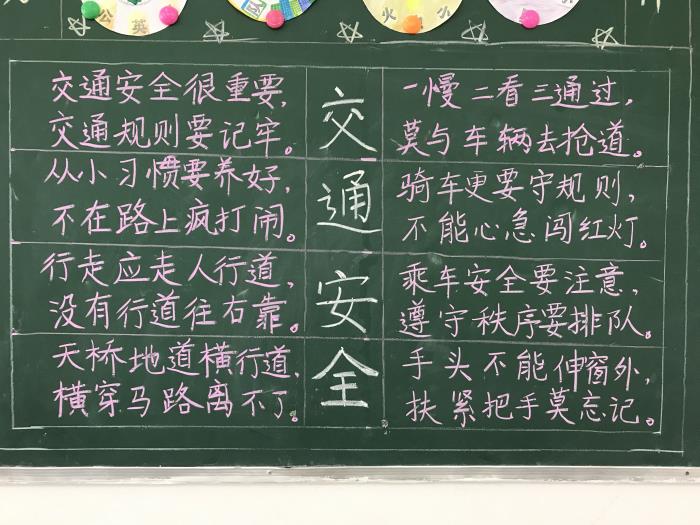 公英
火
交通安全很重要，
交通规则要记牢。
从小习惯要养好，
不在路上疯打闹。
行走应走人行道，
没有行道往右靠。
天桥地道横行道，
横穿马路离不了。
交通安全
一慢二看三通过，
莫与车辆去抢道。
骑车更要守规则，
不能心急闯红灯。
乘车安全要注意，
遵守秩序要排队。
手头不能伸窗外，
扶紧把手莫忘记。